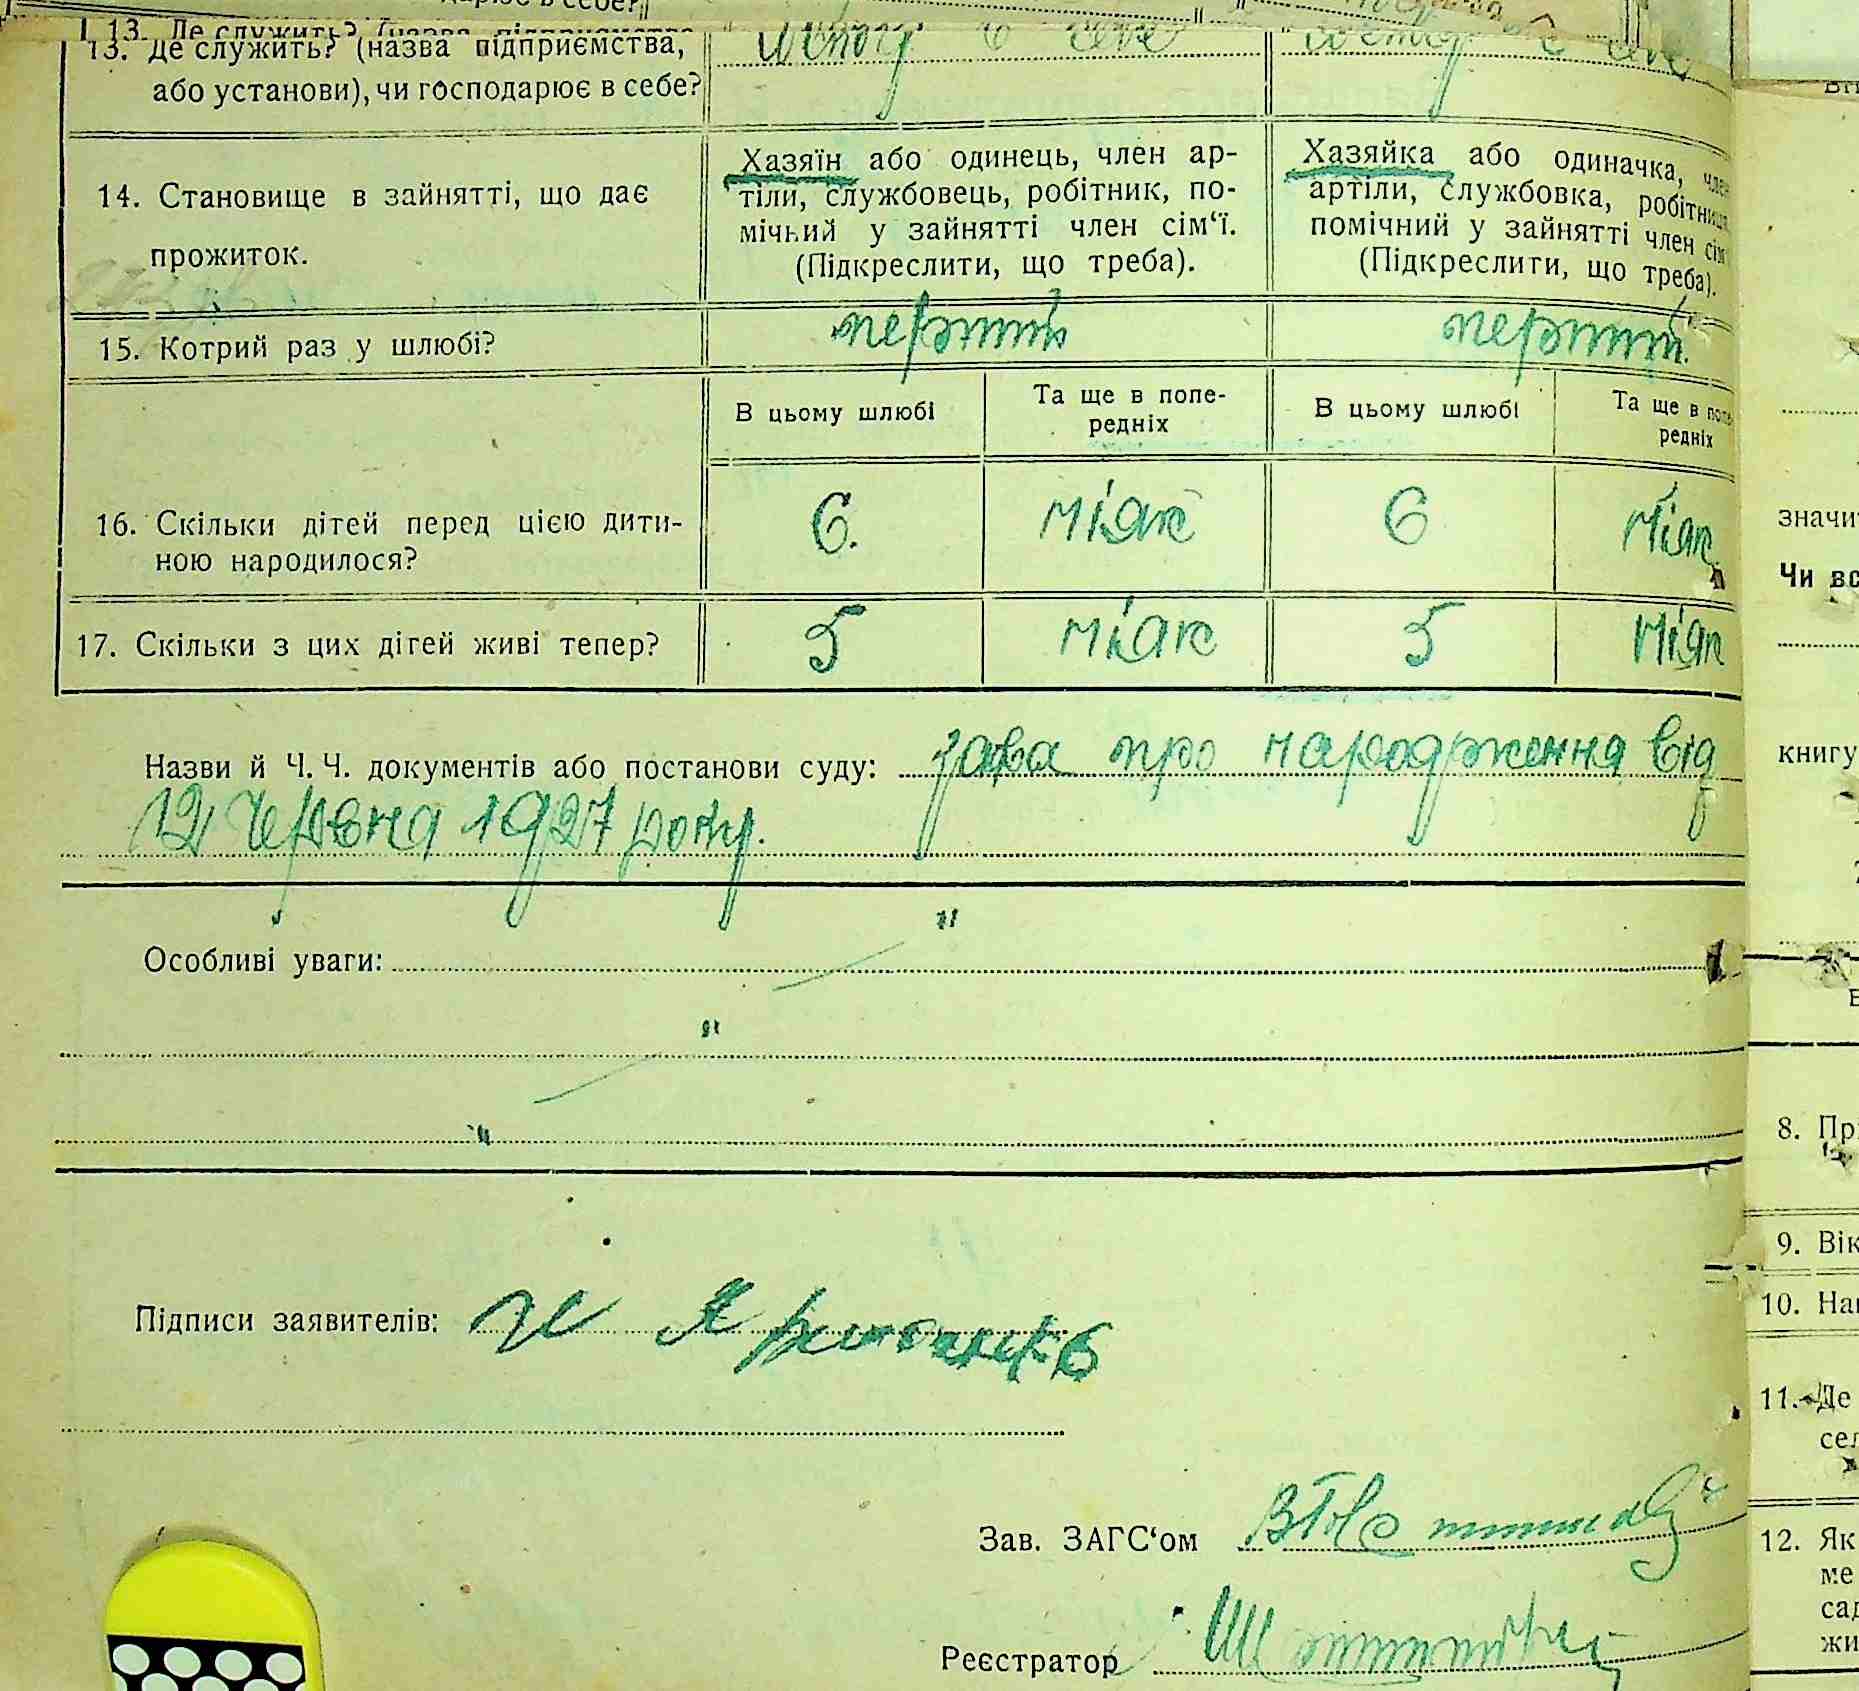 13. Де служить? (назва підприємства,
або установи), чи господарює в себе?
14. Становище в зайнятті, що дає
прожиток.
Хазяїн або одинець, член ар-
тіли, службовець, робітник, по-
мічний у зайнятті член сім‘ї.
(Підкреслити, що треба).
Хазяйка або одиначка, член
артіли, службовка, робітниця,
помічний у зайнятті член сім
(Підкреслити, що треба).
15. Котрий раз у шлюбі?
перший
перший.
В цьому шлюбі
Та ще в попе-
редніх
В цьому шлюбі
Та ще в попе
редніх
16. Скільки дітей перед цією дити-
ною народилося?
6.
ніяк
6
ніяк
17. Скільки з цих дітей живі тепер?
5
ніяк
5
ніяк
Назви й Ч. Ч. документів або постанови суду: заява про народження від
12 червня 1927 року.
Особливі уваги:
Підписи заявителів:
Зав. ЗАГС‘ом
Реєстратор
значи
Чи вс
книгу
8. Пр
9. Вік
10. На
11. Де
сел
12. Як
ме
сад
жи